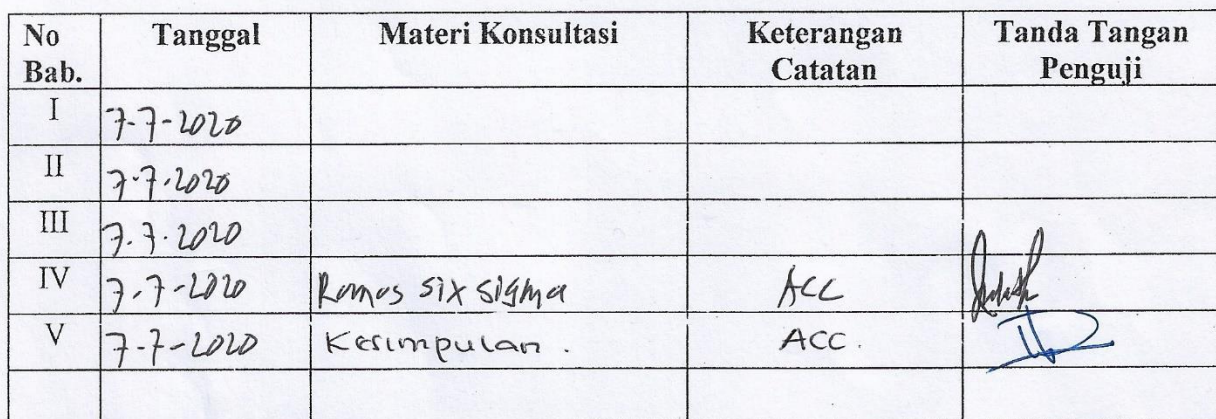 No Bab. Tanggal Materi Konsultasi Keterangan Catatan Tanda Tangan Penguji
I 7-7-2020
II 7-7-2020
III 7.7.2020
IV 7-7-2020 Rumus six sigma ACC
V 7-7-2020 Kesimpulan. ACC.